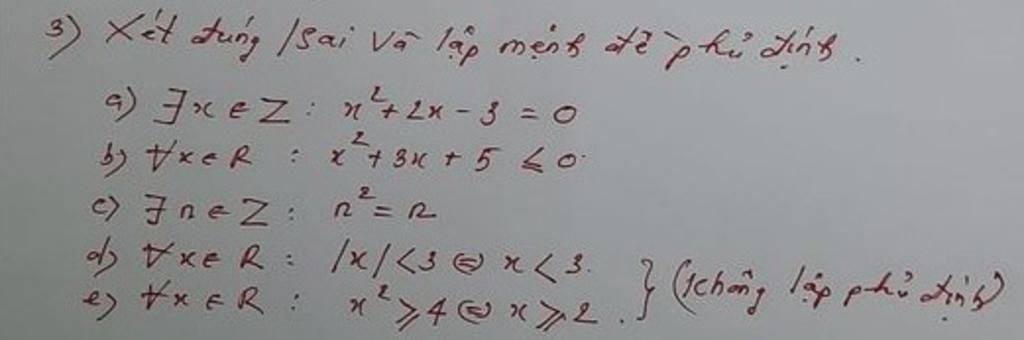 3) Xét đúng/sai và lập mệnh đề phủ định.
a) ∃x ∈ Z : x² + 2x - 3 = 0
b) ∀x ∈ R : x² + 3x + 5 ≤ 0
c) ∃n ∈ Z : n² = n
d) ∀x ∈ R : |x| < 3 ⇔ x < 3.
e) ∀x ∈ R : x² ≥ 4 ⇔ x ≥ 2. } (không lập phủ định)